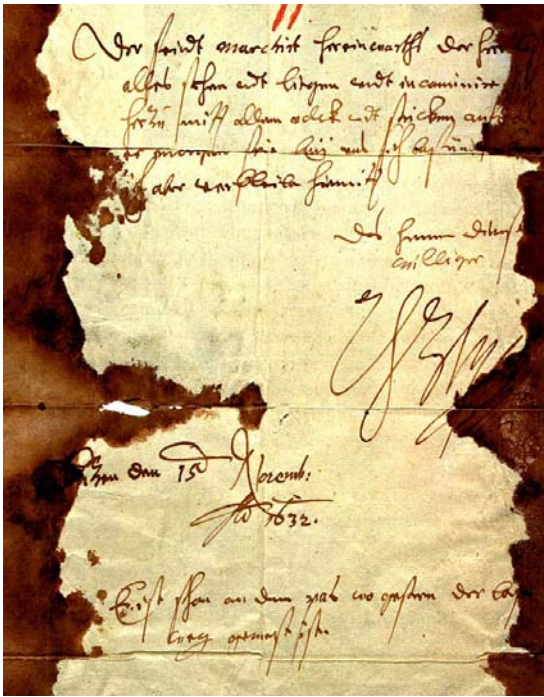 Der feindt marchirt hereinwarths der herr
alles stehen undt liegen undt incaminire
herzu mitt allem volck undt stücken auf
er morgen frie bey uns sich befünden
ich aber verbleibe hiemitt
Des herrn dienst
williger
AHzM
Lützen den 15 Novemb:
Ao 1632.
Er ist schon an dem pas wo gestern der böse
weg gewest ist